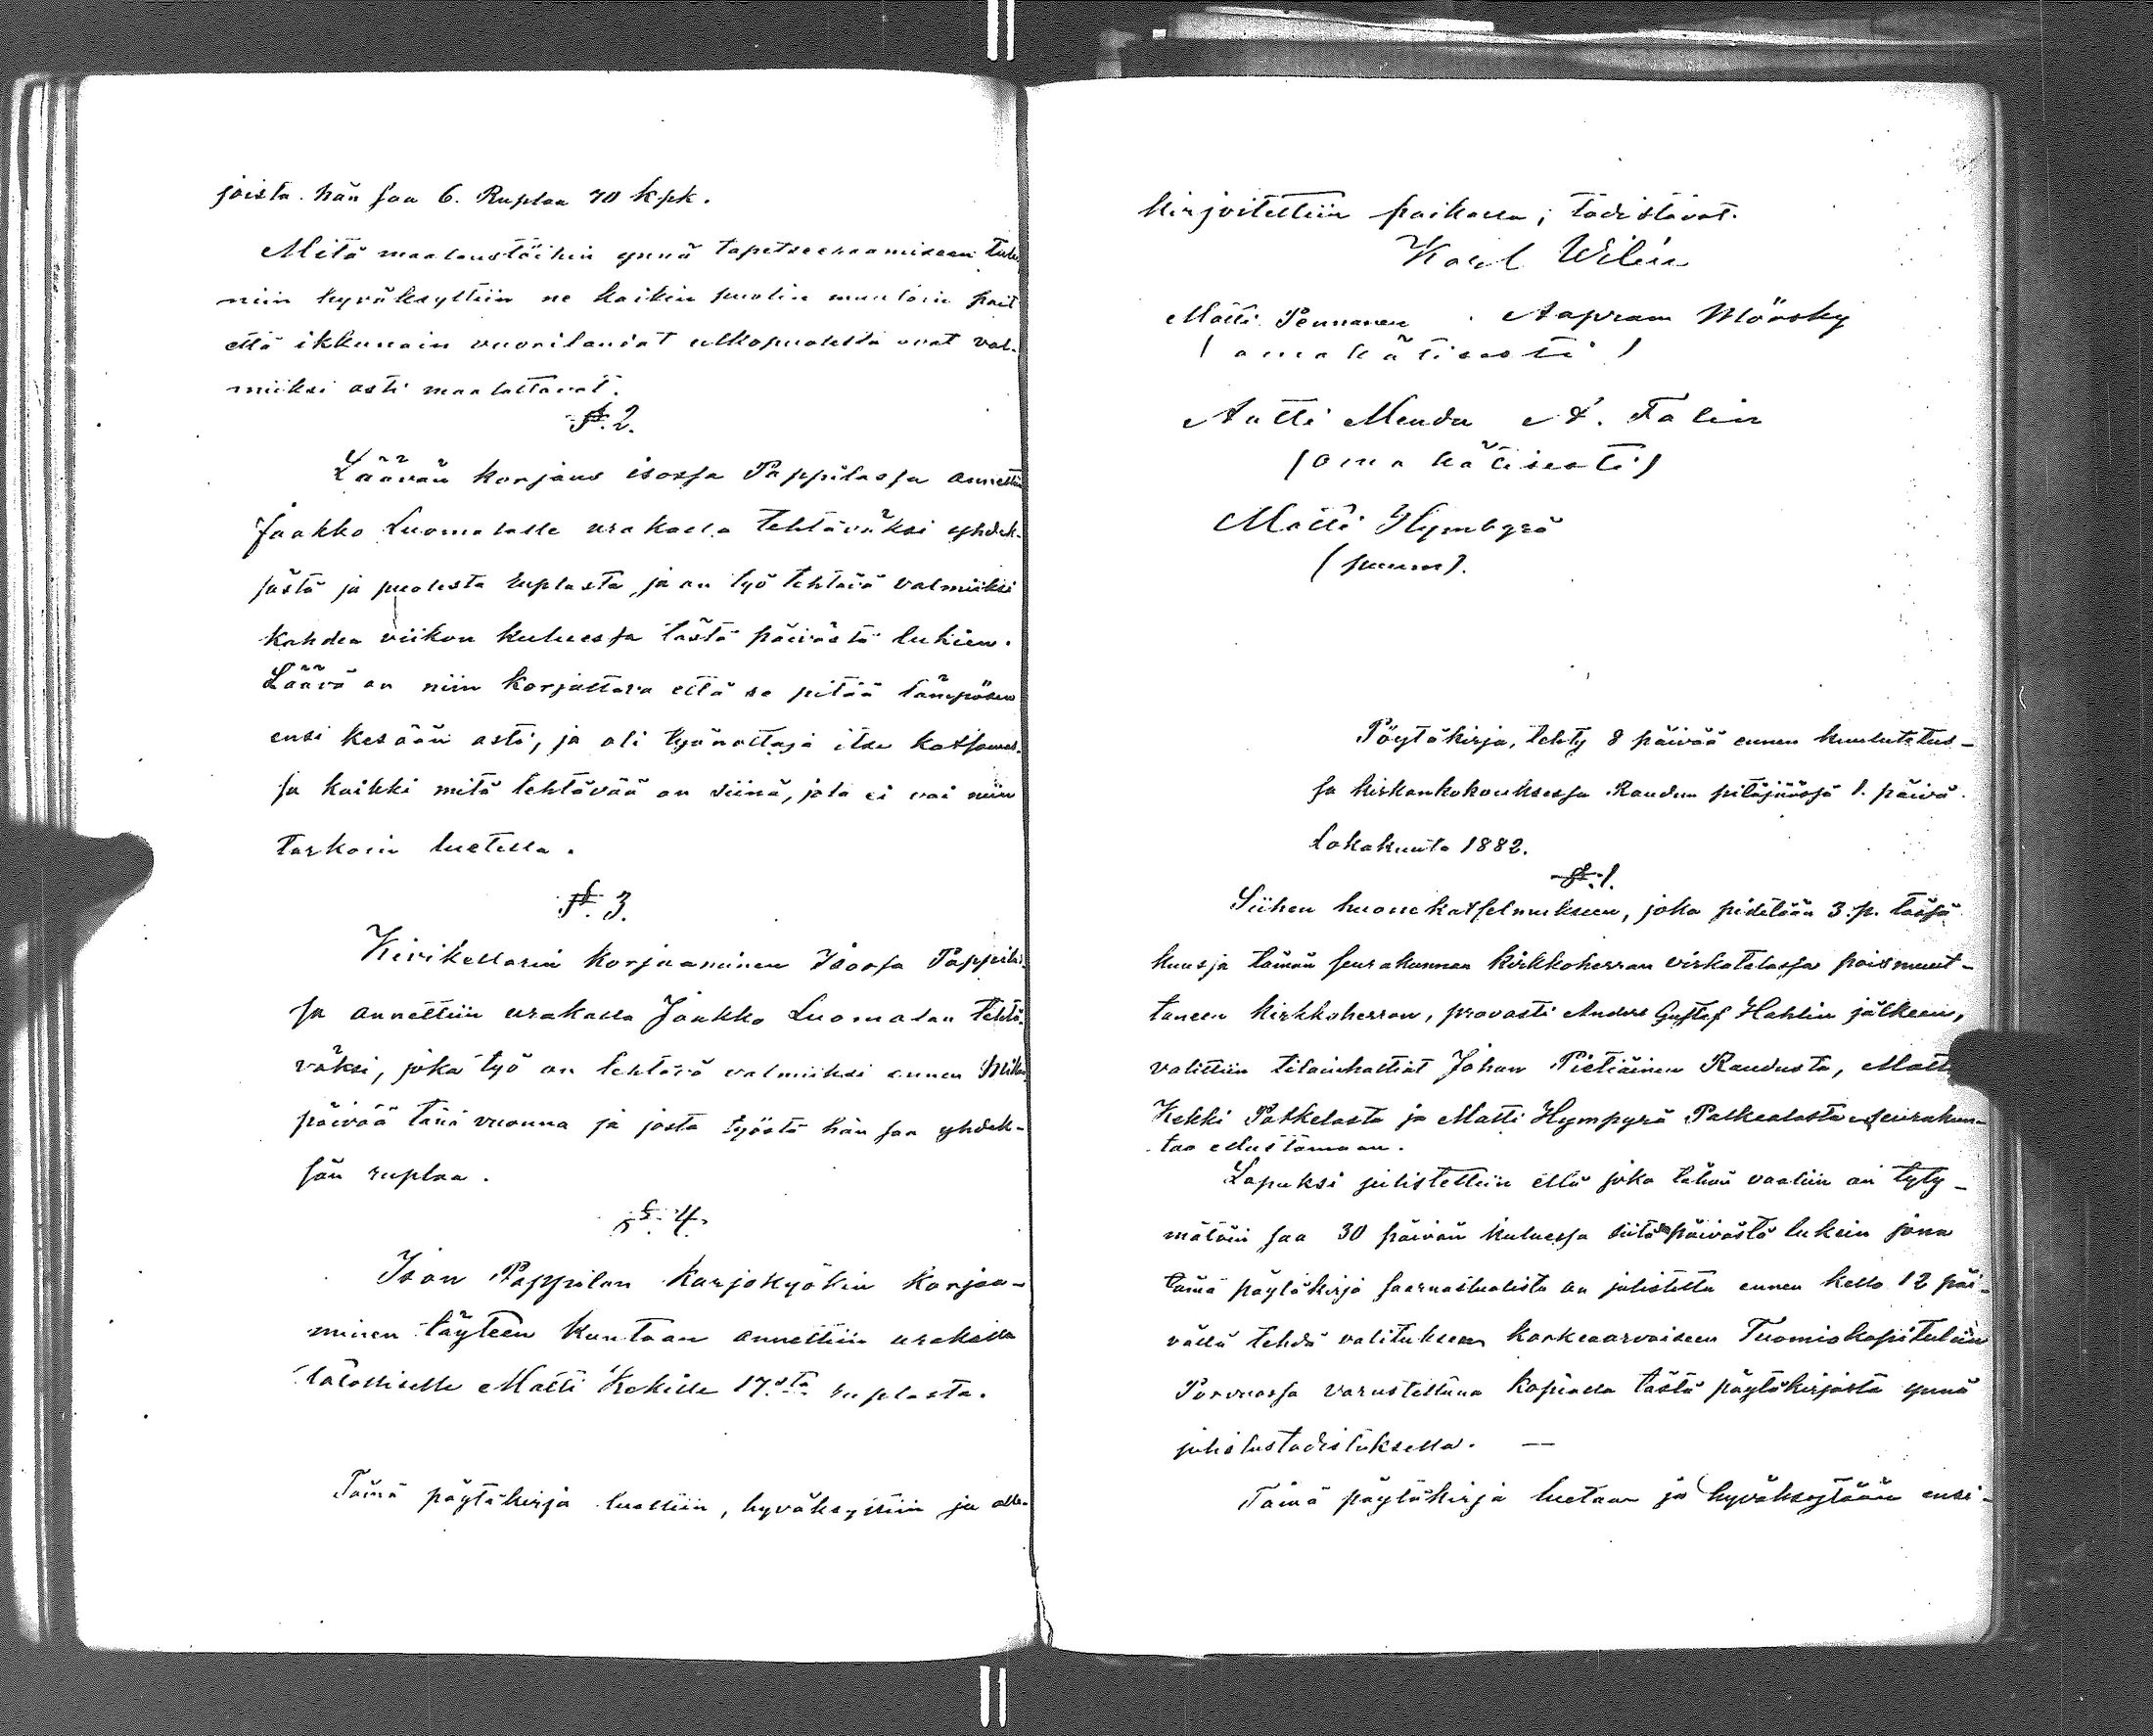 joista hän saa 6. Ruplaa 70 kpk.
Mitä maalaustöihin ynnä tapetseeraamiseen tulee
niin hyväksyttiin ne kaikin puolin muutoin pait
että ikkunain vuorilaudat ulkopuolelta ovat val-
miiksi asti maalattavat.
§. 2.
Läävän korjaus isossa Pappilassa annettiin
Jaakko Luomalalle urakalla tehtäväksi yhdek-
sästä ja puolesta ruplasta, ja on työ tehtävä valmiiksi
kahden viikon kuluessa tästä päivästä lukien.
Läävä on niin korjattava että se pitää lämpösen
ensi kesään asti, ja oli työnottaja itse katsomas-
sa kaikki mitä tehtävää on siinä, jota ei voi niin
tarkoin luetella.
§. 3.
Kivikellarin korjaaminen Isossa Pappilas-
sa annettiin urakalla Jaakko Luomalan tehtä-
väksi, joka työ on tehtävä valmiiksi ennen Mikon
päivää tänä vuonna ja josta työstä hän saa yhdek-
sän ruplaa.
§. 4.
Ison Pappilan karjakyökin korjaa-
minen täyteen kuntaan annettiin urakalla
talolliselle Matti Kekille 17.sta ruplasta.
Tämä pöytäkirja luettiin, hyväksyttiin ja alle-
kirjoitettiin paikalla; todistavat.
Karl Wilén
Matti Pennanen. Aapram Mörsky
(omakätisesti)
Antti Mendu A. Talin
(oma kätisesti)
Matti Hympyrä
(puum).
Pöytäkirja, tehty 8 päivää ennen kuulutetus-
sa kirkonkokouksessa Raudun pitäjäässä 1. päivä
Lokakuuta 1882.
§. 1.
Siihen huonekatselmukseen, joka pidetään 3. p. tässä
kuussa tämän seurakunnan kirkkoherran virkatalossa poismuut-
taneen kirkkoherran, provasti Anders Gustaf Hahlin jälkeen,
valittiin tilanhaltiat Johan Pietiäinen Raudusta, Matti
Kekki Palkelasta ja Matti Hympyrä Palkealasta seurakun-
taa edustamaan.
Lopuksi julistettiin että joka tähän vaaliin on tyty-
mätöin saa 30 päivän kuluessa siitä päivästä lukein jona
tämä pöytäkirja saarnastuolista on julistettu ennen kello 12 päi-
vällä tehdä valituksen korkeaarvoiseen Tuomiokapituliin
Porvoossa varustettuna kopialla tästä pöytäkirjasta ynnä
julistustodistuksella. —
Tämä pöytäkirja luetaan ja hyväksytään ensi-